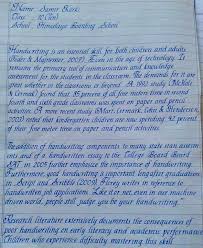 Name:
Class: 10 (Ten)
School: Himalaya Boarding School
Handwriting is an essential skill for both children and adults
(Feder & Majnemer, 2007). Even in the age of technology, it
remains the primary tool of communication and knowledge
assessment for the students in the classroom. The demands for it are
great whether in the classroom or beyond. A 1992 study (McHale
& Cermak) found that 85 percent of all fine motor time in second
fourth and sixth grade classrooms was spent on paper and pencil
activities. A more recent study (Marr, Cermark, Cohn & Henderson,
2003) noted that kindergarten children are now spending 42 percent
of their fine motor time on paper and pencil activities.
The addition of handwriting components to many state assess-
ments and of a handwritten essay to the College Board
SAT in 2005 further emphasize the importance of handwriting.
Furthermore, good handwriting is important long after graduation
In Script and Scribble (2009) Florey writes in reference to
handwritten job application. Like it or not, even in our machine-
driven world, people still judge you by your handwriting.
Research literature extensively documents the consequences of
poor handwriting on early literacy and academic performance
Children who experience difficulty mastering this skill